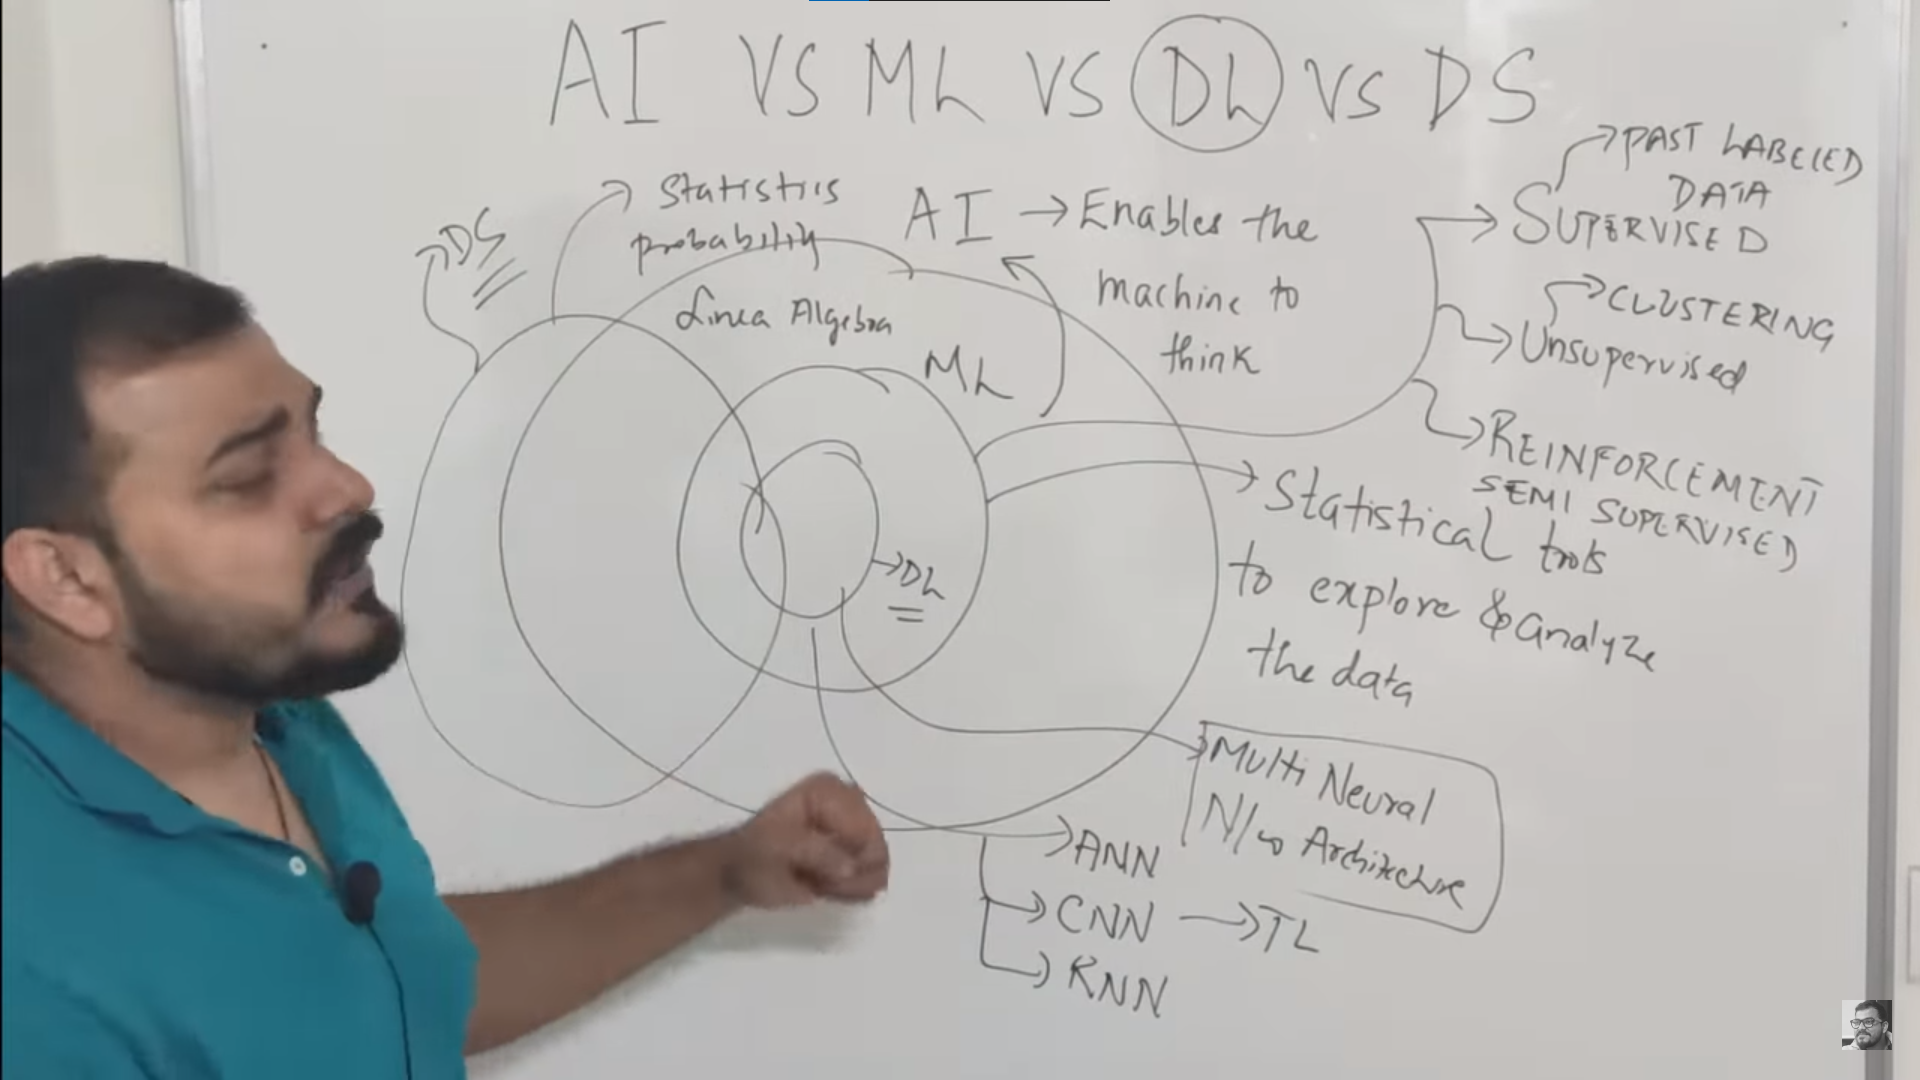 AI VS ML VS DL VS DS
DS
Statistris
probability
Linea Algebra
AI → Enables the
machine to
think
ML
→DL
→PAST LABELED
DATA
→SUPERVISED
→CLUSTERING
→Unsupervised
→REINFORCEMENT
SEMI SUPERVISED
→Statistical tools
to explore & analyze
the data
Multi Neural
N/w Architecture
→ANN
→CNN → TL
→RNN